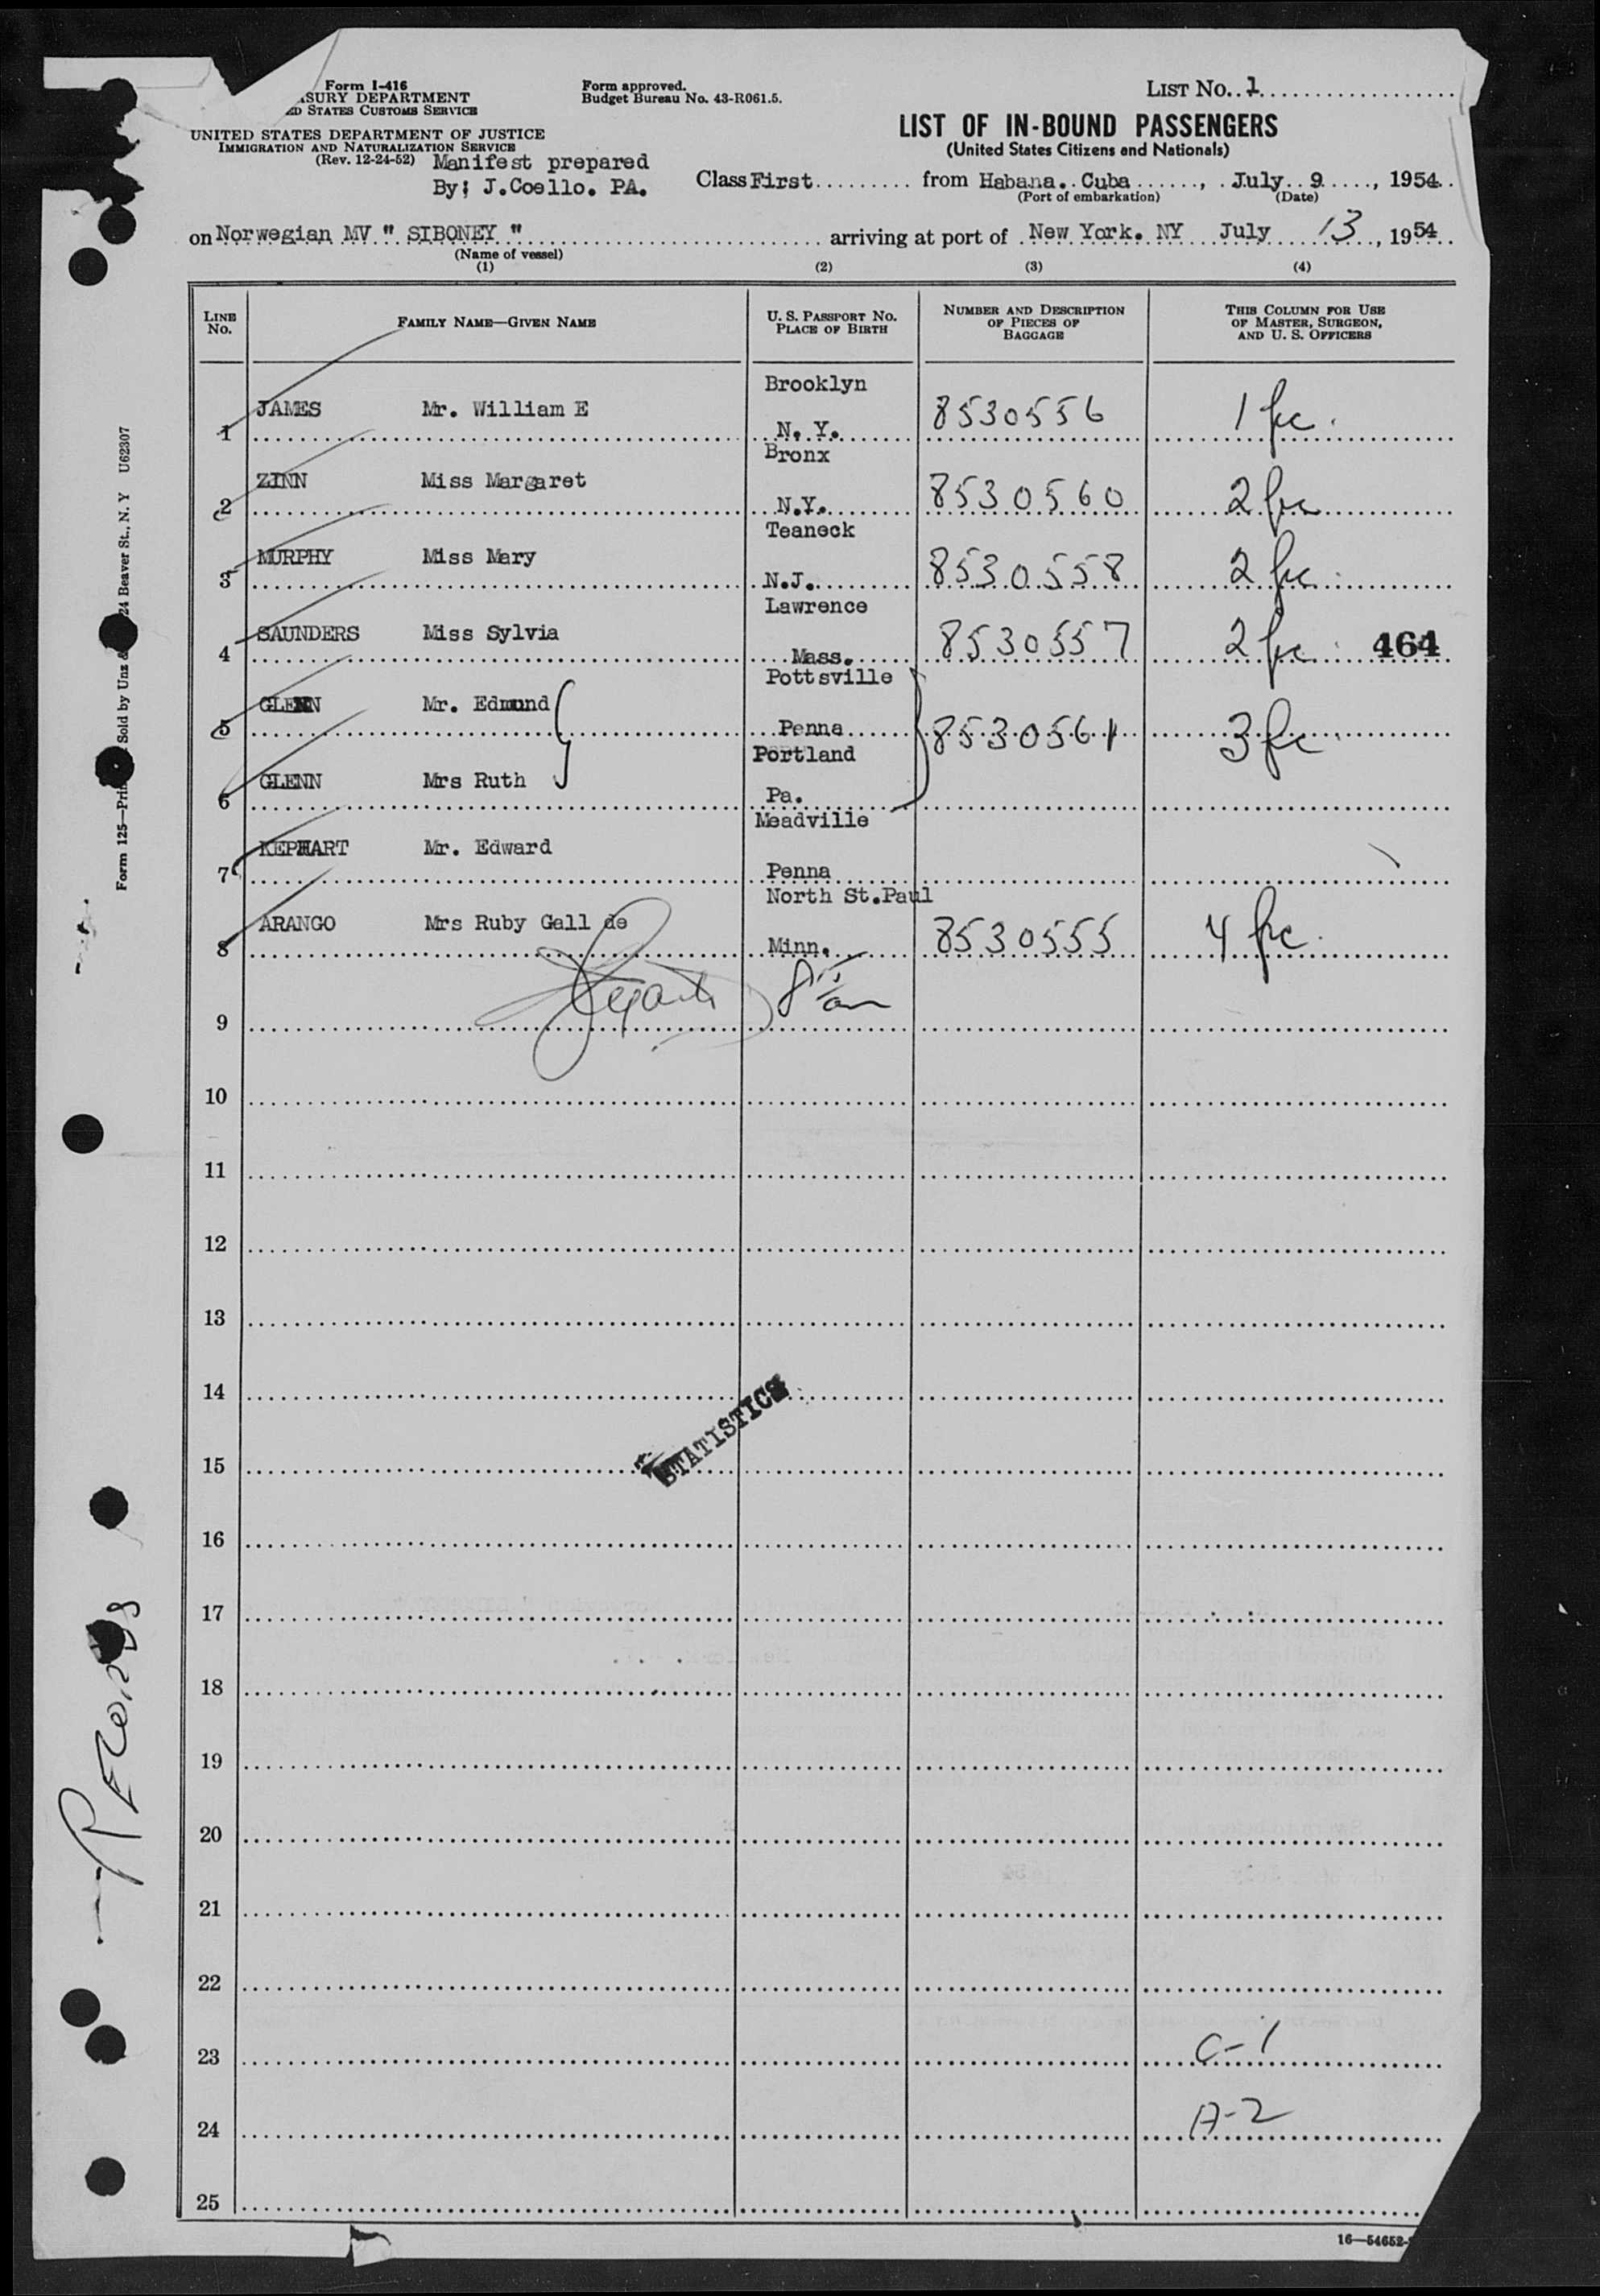 Form I-416
ASURY DEPARTMENT
ED STATES CUSTOMS SERVICE
UNITED STATES DEPARTMENT OF JUSTICE
IMMIGRATION AND NATURALIZATION SERVICE
(Rev. 12-24-52)
Manifest prepared
By; J.Coello. PA.
Form approved.
Budget Bureau No. 43-R061.5.
LIST NO. 1
LIST OF IN-BOUND PASSENGERS
(United States Citizens and Nationals)
Class First from Habana. Cuba, July 9, 1954
(Port of embarkation) (Date)
on Norwegian MV " SIBONEY " arriving at port of New York. NY July 13, 1954
(Name of vessel)
(1) (2) (3) (4)
LINE NO. FAMILY NAME—GIVEN NAME U. S. PASSPORT NO. PLACE OF BIRTH NUMBER AND DESCRIPTION OF PIECES OF BAGGAGE THIS COLUMN FOR USE OF MASTER, SURGEON, AND U. S. OFFICERS
1 JAMES Mr. William E Brooklyn N. Y. 8530556 1 pc.
2 ZINN Miss Margaret Bronx N.Y. 8530560 2 pc
3 MURPHY Miss Mary Teaneck N.J. 8530558 2 pc.
4 SAUNDERS Miss Sylvia Lawrence Mass. 8530557 2 pc. 464
5 GLENN Mr. Edmund Pottsville Penna 8530561 3 pc
6 GLENN Mrs Ruth Portland Pa.
7 KEPHART Mr. Edward Meadville Penna
8 ARANGO Mrs Ruby Gall de North St.Paul Minn. 8530555 4 pc.
9
10
11
12
13
14
15
16
17
18
19
20
21
22
23 C-1
24 A-2
25
STATISTICS
Form 125—Prin Sold by Unz & 24 Beaver St., N. Y U62307
16—54652-